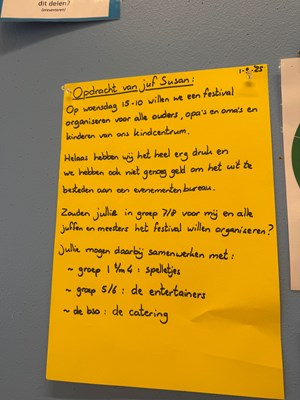 dit delen?
(presenteren)
1-9-25
Opdracht van juf Susan:
Op woensdag 15-10 willen we een festival
organiseren voor alle ouders, opa's en oma's en
kinderen van ons kindcentrum.
Helaas hebben wij het heel erg druk en
we hebben ook niet genoeg geld om het uit te
besteden aan een evenementenbureau.
Zouden jullie in groep 7/8 voor mij en alle
juffen en meesters het festival willen organiseren?
Jullie mogen daarbij samenwerken met:
~ groep 1 t/m 4 : spelletjes
~ groep 5/6 : de entertainers
~ de bso : de catering